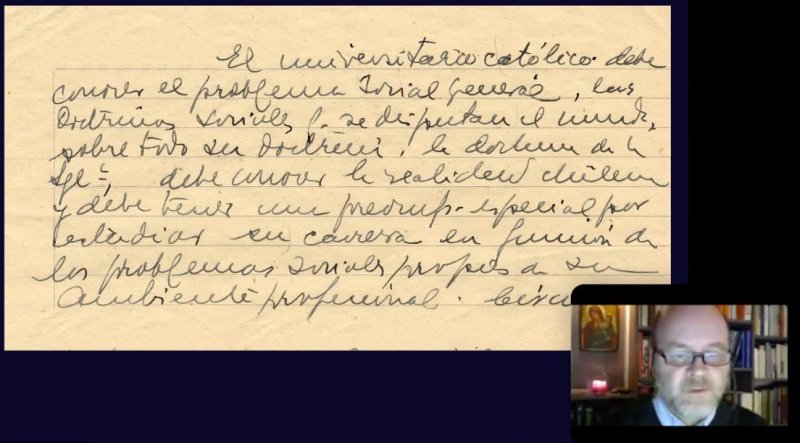 El universitario católico debe
conocer el problema social general, las
doctrinas sociales q. se disputan el mundo,
sobre todo su doctrina, la doctrina de la
Igl.ª, debe conocer la realidad chilena
y debe tener una preocup. especial por
estudiar su carrera en función de
los problemas sociales propios de su
ambiente profesional.